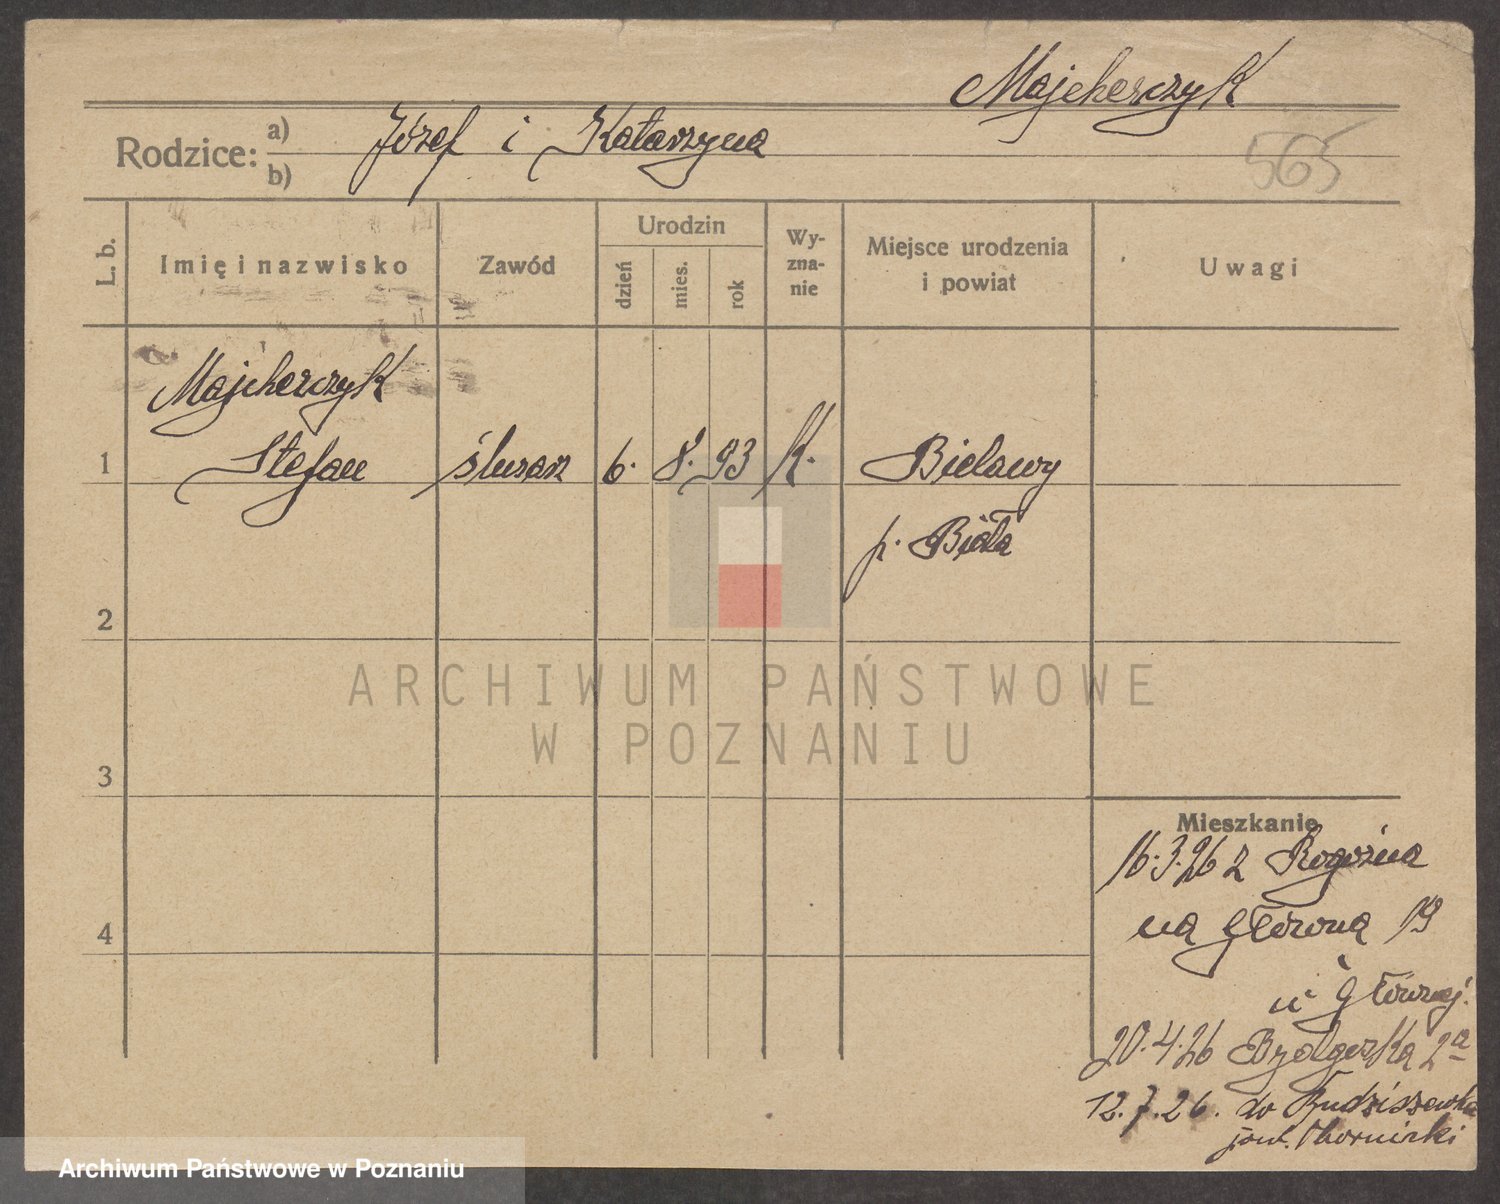 Majcherczyk
Rodzice: a) b) Józef i Katarzyna
565
L. b.
Imię i nazwisko
Zawód
Urodzin
dzień
mies.
rok
Wy-
zna-
nie
Miejsce urodzenia
i powiat
Uwagi
Majcherczyk
1 Stefan ślusarz 6. 8. 93 K. Bielawy
p. Biała
2
ARCHIWUM PAŃSTWOWE
W POZNANIU
3
Mieszkanie
16.3.26 z Rogoźna
4
na Główną 19
w Głównej.
20.4.26 Bydgoska 2a
12.7.26. do Budziszewka
pow. Obornicki
Archiwum Państwowe w Poznaniu